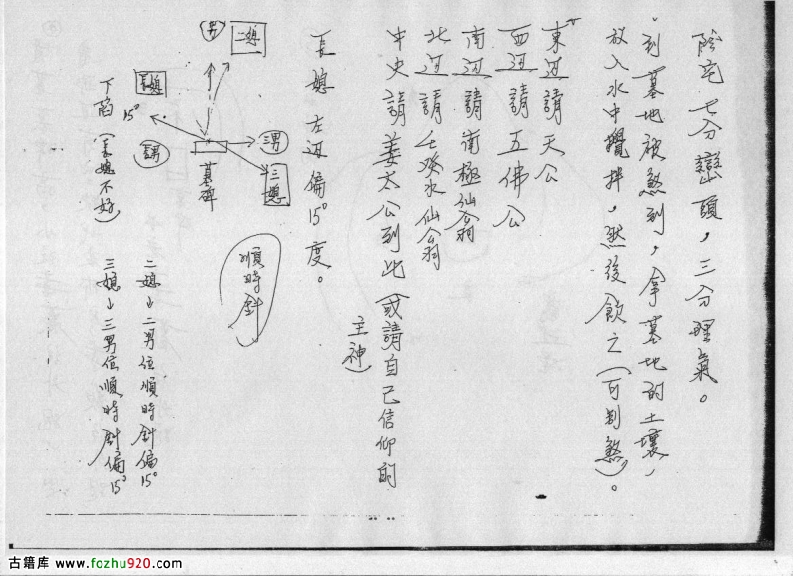 陰宅七分巒頭，三分理氣。
到墓地被煞到，拿墓地的土壤，
放入水中攪拌，然後飲之（可制煞）。
東边請天公
西边請五佛公
南边請南極仙翁
北边請 水仙翁
中央請姜太公到此（或請自己信仰的
主神）
長媳左边偏15°度。
順時針
二媳
男
長媳
15°
長男
墓碑
三男
三媳
下陷（長媳不好）
二媳→二男位順時針偏15°
三媳→三男位順時針偏15°
古籍库 www.fozhu920.com